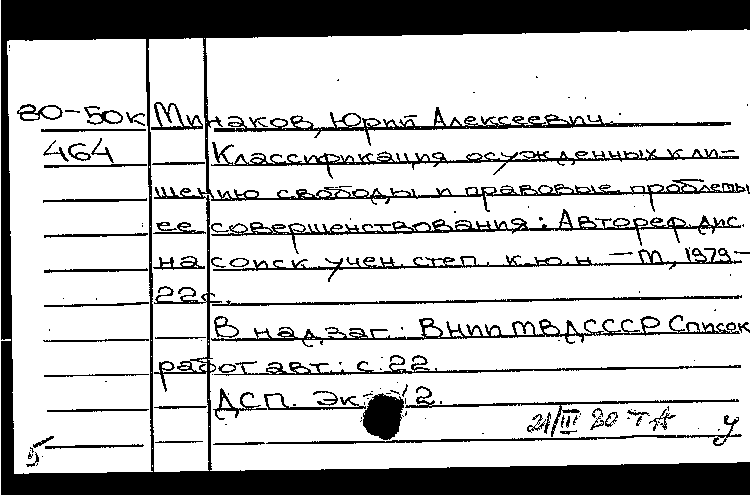 80-50к Минаков, Юрий Алексеевич.
464 Классификация осужденных к ли-
шению свободы и правовые проблемы
ее совершенствования: Автореф дис
на соиск. учен. степ. к.ю.н. — М, 1979 -
22с.
В надзаг.: ВНИИ МВД СССР Список
работ авт.: с. 22.
ДСП. Эк 2.
21/III 80
5